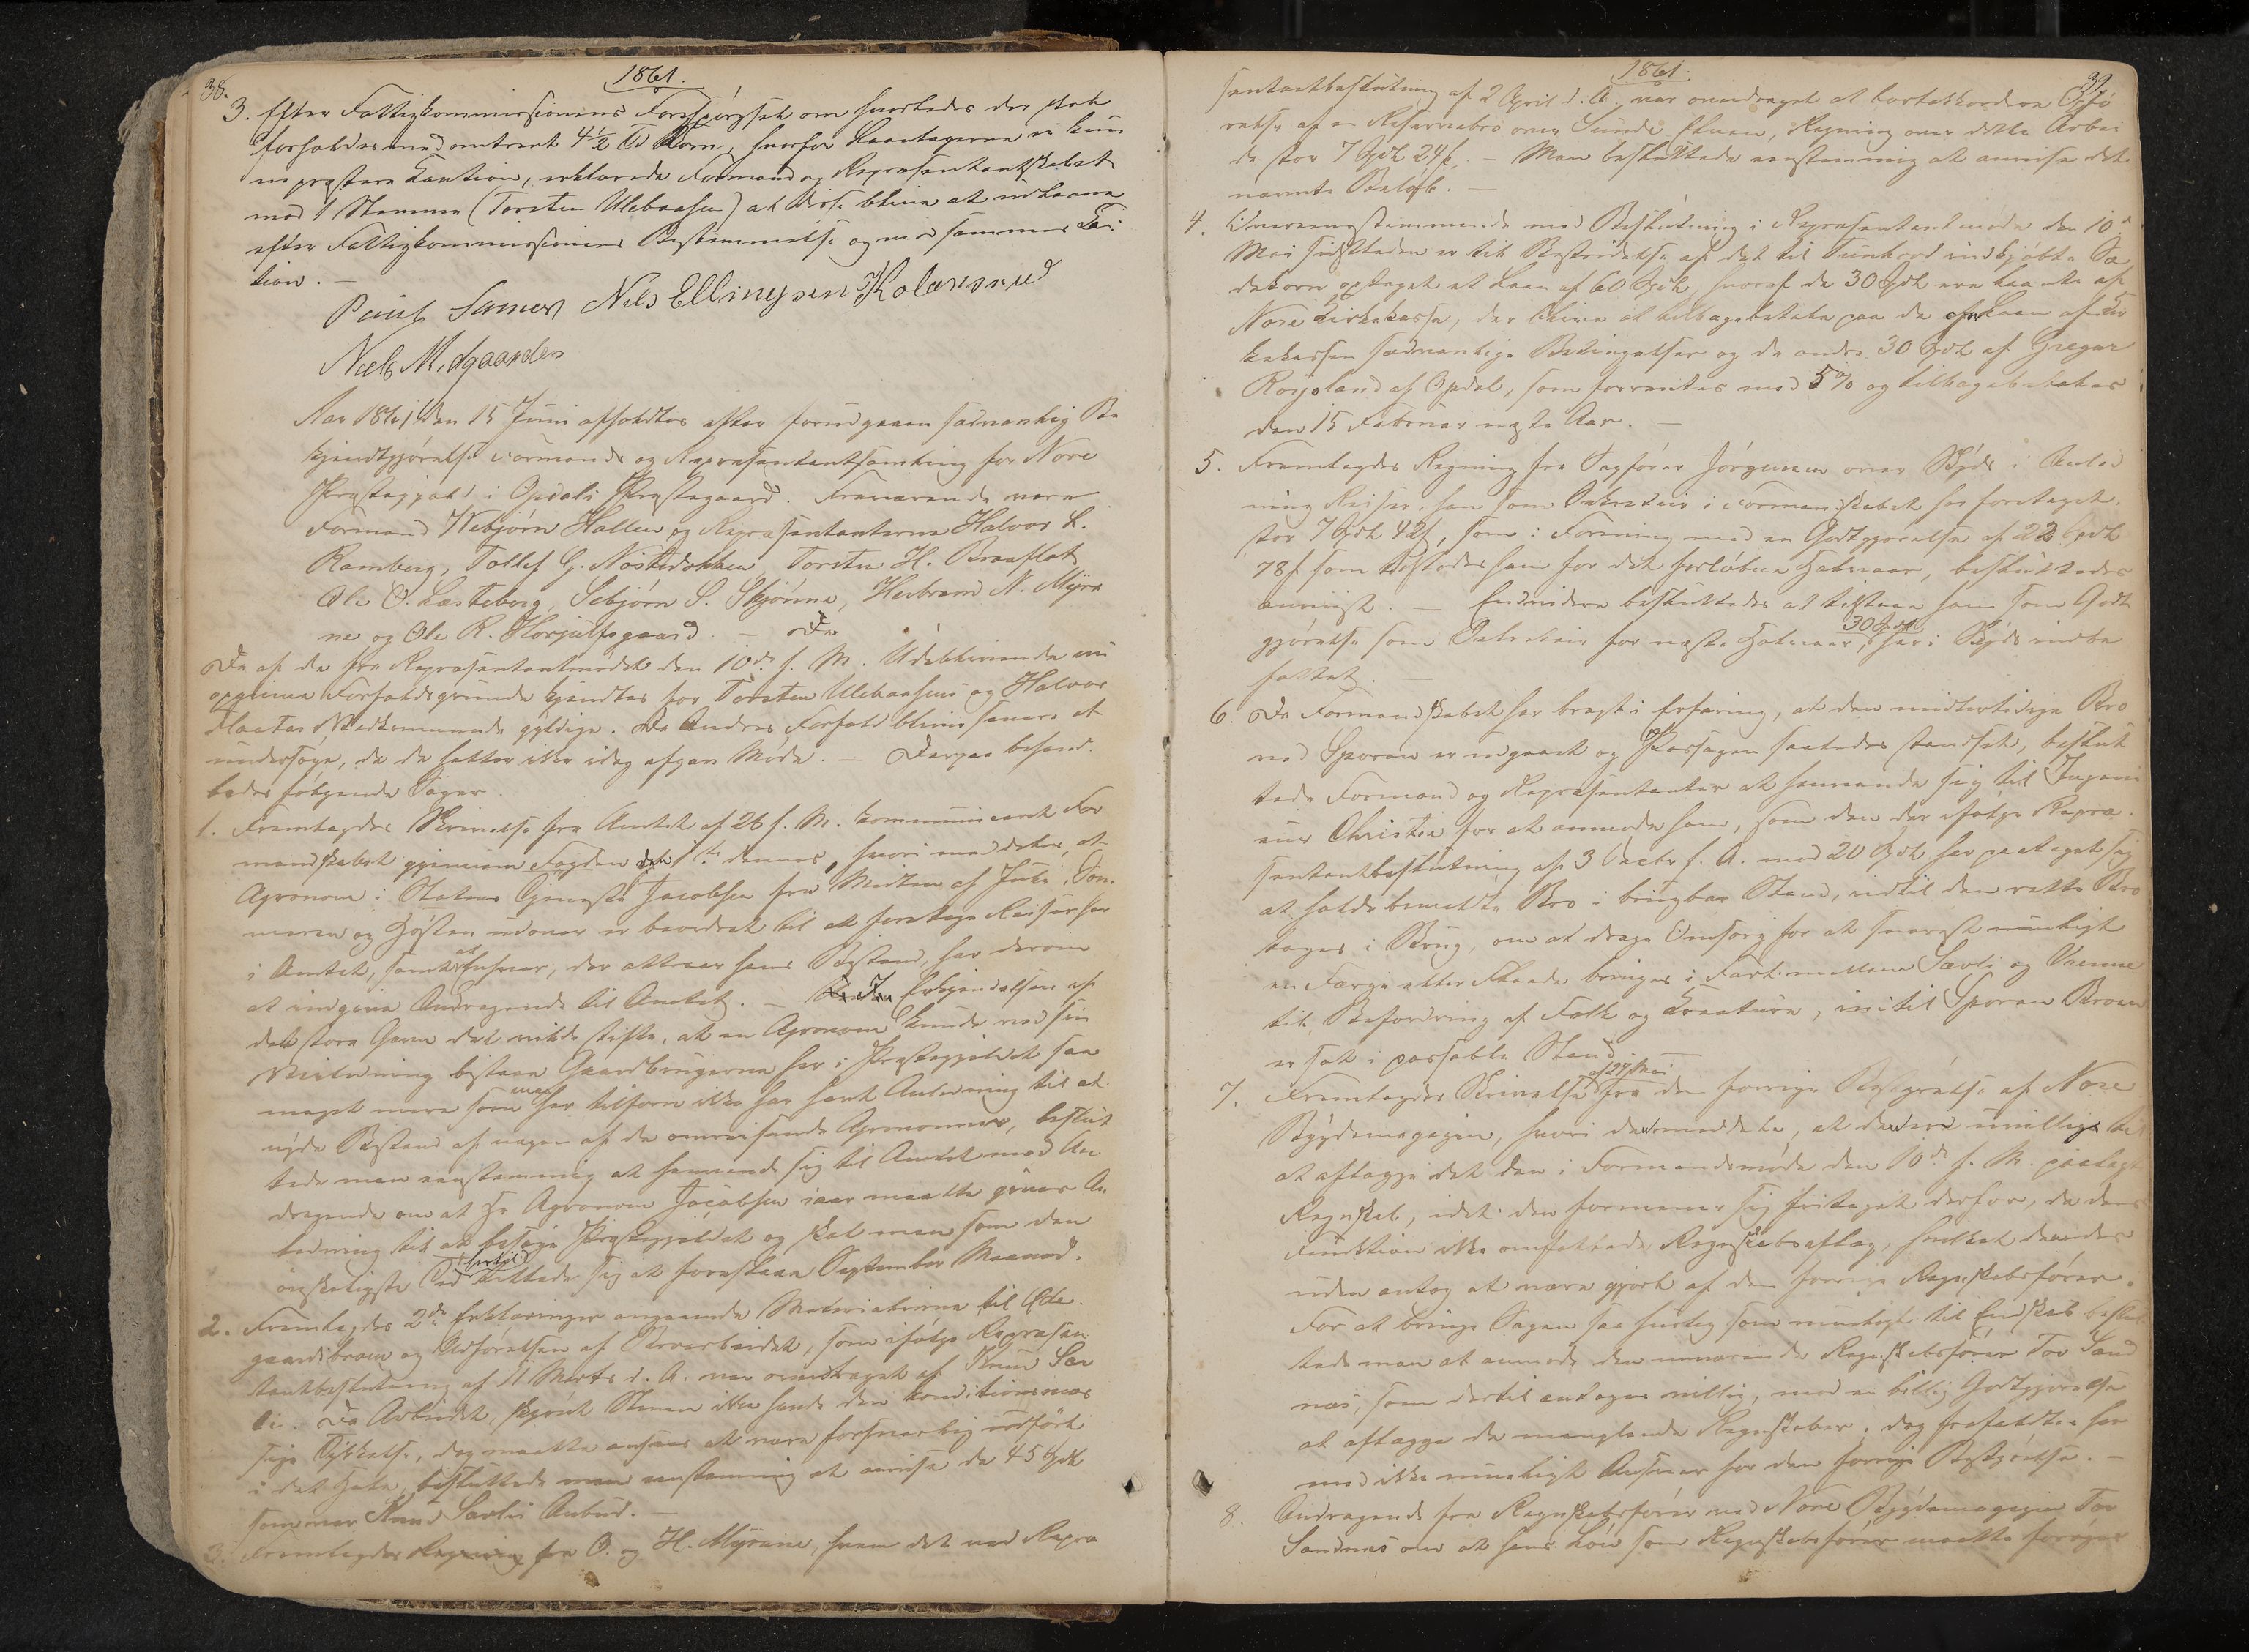 38.
1861.
3. Efter Fattigkommissionens Forespørgsel om hvorledes der skal
forholdes med omtrent 4½ Td Korn, hvorfor Laantagerne ei kun
ne præstere Kaution, erklærede Formand og Repræsentantskabet
mod 1 Stemme (Torsten Ulebaasen) at disse blive at udlaane
efter Fattigkommissionens Bestemmelse og mod sammes Kau
tion. —
Poul Nils Ellingsen Kolarsrud
Niels Midgaarden
Aar 1861 den 15 Juni afholdtes efter forudgaaen sædvanlig Be
kjendtgjørelse Formands og Repræsentantsamling for Nore
Præstegjæld i Opdals Præstegaard. Fraværende vare
Formand Webjørn Hallen og Repræsentanterne Halvor L.
Ramberg, Tollef G. Nøstedokken Torsten H. Braaflat
Ole O. Lasteborg, Sebjørn S. Skjønne, Herbrand N. Myra
ne og Ole R. Horjulfsgaard. —
Da af de fra Repræsentantmødet den 10de f. M. Udeblivende nu
opgivne Forfaldsgrunde kjendtes for Torsten Ulebaasens og Halvor
Vedkommende gyldige. De Andres Forfald blive senere at
undersøge, da de heller ikke idag afgav Møde. — Derpaa behand
ledes følgende Sager.
1. Fremlagdes Skrivelse fra Amtet af 26 f. M. kommuniceret For
mandskabet gjennem Fogden den 1ste dennes, hvori meddeles, at
Agronom i Statens Tjeneste Jacobsen fra Midten af Juli, Som
meren og Høsten udover er beordret til at foretage Reiser her
i Amtet, samt at Enhver, der attraar hans Bistand, har derom
at indgive Andragende til Amtet. — I Erkjendelsen af
det store Gavn det vilde stifte, at en Agronom kunde ved sin
Veiledning bistaae Gaardbrugerne her i Præstegjeldet saa
meget mere som man her tilforn ikke har havt Anledning til at
nyde Bistand af nogen af de omreisende Agronomer, beslut
tede man eenstemmig at henvende sig til Amtet med An
dragende om at Hr Agronom Jacobsen iaar maatte gives An
ledning til at besøge Præstegjeldet og skal man som den
ønskeligste Tid hertil tillade sig at foreslaae September Maaned.
2. Fremlagdes 2de Erklæringer angaaende Materialierne til Øde
gaardsbroen og Udførelsen af Broarbeidet, som ifølge Repræsen
tantbeslutning af 11 Marts d. A. var overdraget af Knud Sæv
li. Da Arbeidet, skjønt Stenen ikke havde den konditionsmæs
sige Tykkelse, dog maatte ansees at være forsvarlig udført
i det Hele, besluttede man eenstemmig at anvise de 45 Spdl
som var Knud Sævlis Anbud. —
3. Fremlagdes Regning fra O. og H. Myrane, hvem det ved Repræ
1861.
39
sentantbeslutning af 2 April d. A. var overdraget at Opfø
relse af en Reservebro over Sunde Elven, Regning over dette Arbei
de stor 7 Spdl 24 ß. — Man besluttede eenstemmig at anvise det
nævnte Beløb. —
4. Overeensstemmende med Beslutning i Repræsentantmøde den 10de
Mai sidstleden er til Bestridelse af det til Tunhovd indkjøbte Sæ
dekorn optaget et Laan af 60 Spdl, hvoraf de 30 Spdl ere laante af
Nore Kirkekasse, der blive at tilbagebetale paa de for Laan af Kir
kekassen sædvanlige Betingelser og de andre 30 Spdl af Gregar
Rosjoland af Opdal, som forrentes med 5% og tilbagebetales
den 15 Februar næste Aar. —
5. Fremlagdes Regning fra Sagfører Jörgensen over Skyds i Anled
ning Reiser, han som Sekretair i Formandskabet har foretaget,
stor 7 Spdl 42 ß, som i Forening med en Godtgjørelse af 22 Spdl
78 ß som tilstodes ham for det forløbne Halvaar, besluttedes
anvist. — Endvidere besluttedes at tilstaae ham som Godt
gjørelse som Sekretair for næste Halvaar 30 Spdl, heri Skyds indbe
fattet. —
6. Da Formandskabet har bragt i Erfaring, at den midlertidige Bro
ved Sporan er udgaaet og Passagen saaledes standset, beslut
tede Formænd og Repræsentanter at henvende sig til Ingeni
eur Christie for at anmode ham, som den der ifølge Repræ
sentantbeslutning af 3 f. A. mod 20 Spdl har paataget sig
at holde bemeldte Bro i brugbar Stand, indtil den rette Bro
tages i Brug, om at drage Omsorg for at snarest muligt
en Færge eller Flaade bringes i Fart mellem Sævli og Vrenne
til Befordring af Folk og Kreature, indtil Sporan Broen
er sat i passable Stand.
7. Fremlagdes Skrivelse af 27 Mai fra den forrige Bestyrelse af Nore
Bygdemagazin, hvori den meddeler, at den er uvillig til
at aflægge det den i Formandsmøde den 10de f. M. paalagte
Regnskab, idet den formener sig fritaget derfor, da dens
Funktion ikke omfattede Regnskabsaflæg, hvilket desuden
uden antog at være gjort af den forrige Regnskabsfører.
For at bringe Sagen saa hurtig som muligt til Endskab beslut
tede man at anmode den nuværende Regnskabsfører Tor Sand
næs, som dertil antages villig, mod en billig Godtgjørelse
at aflægge de manglende Regnskaber, dog frafaldtes her
med ikke muligt Ansvar for den forrige Bestyrelse. —
8. Andragende fra Regnskabsfører ved Nore Bygdemagazin Tor
Sandnæs om at hans Løn som Regnskabsfører maatte forøges